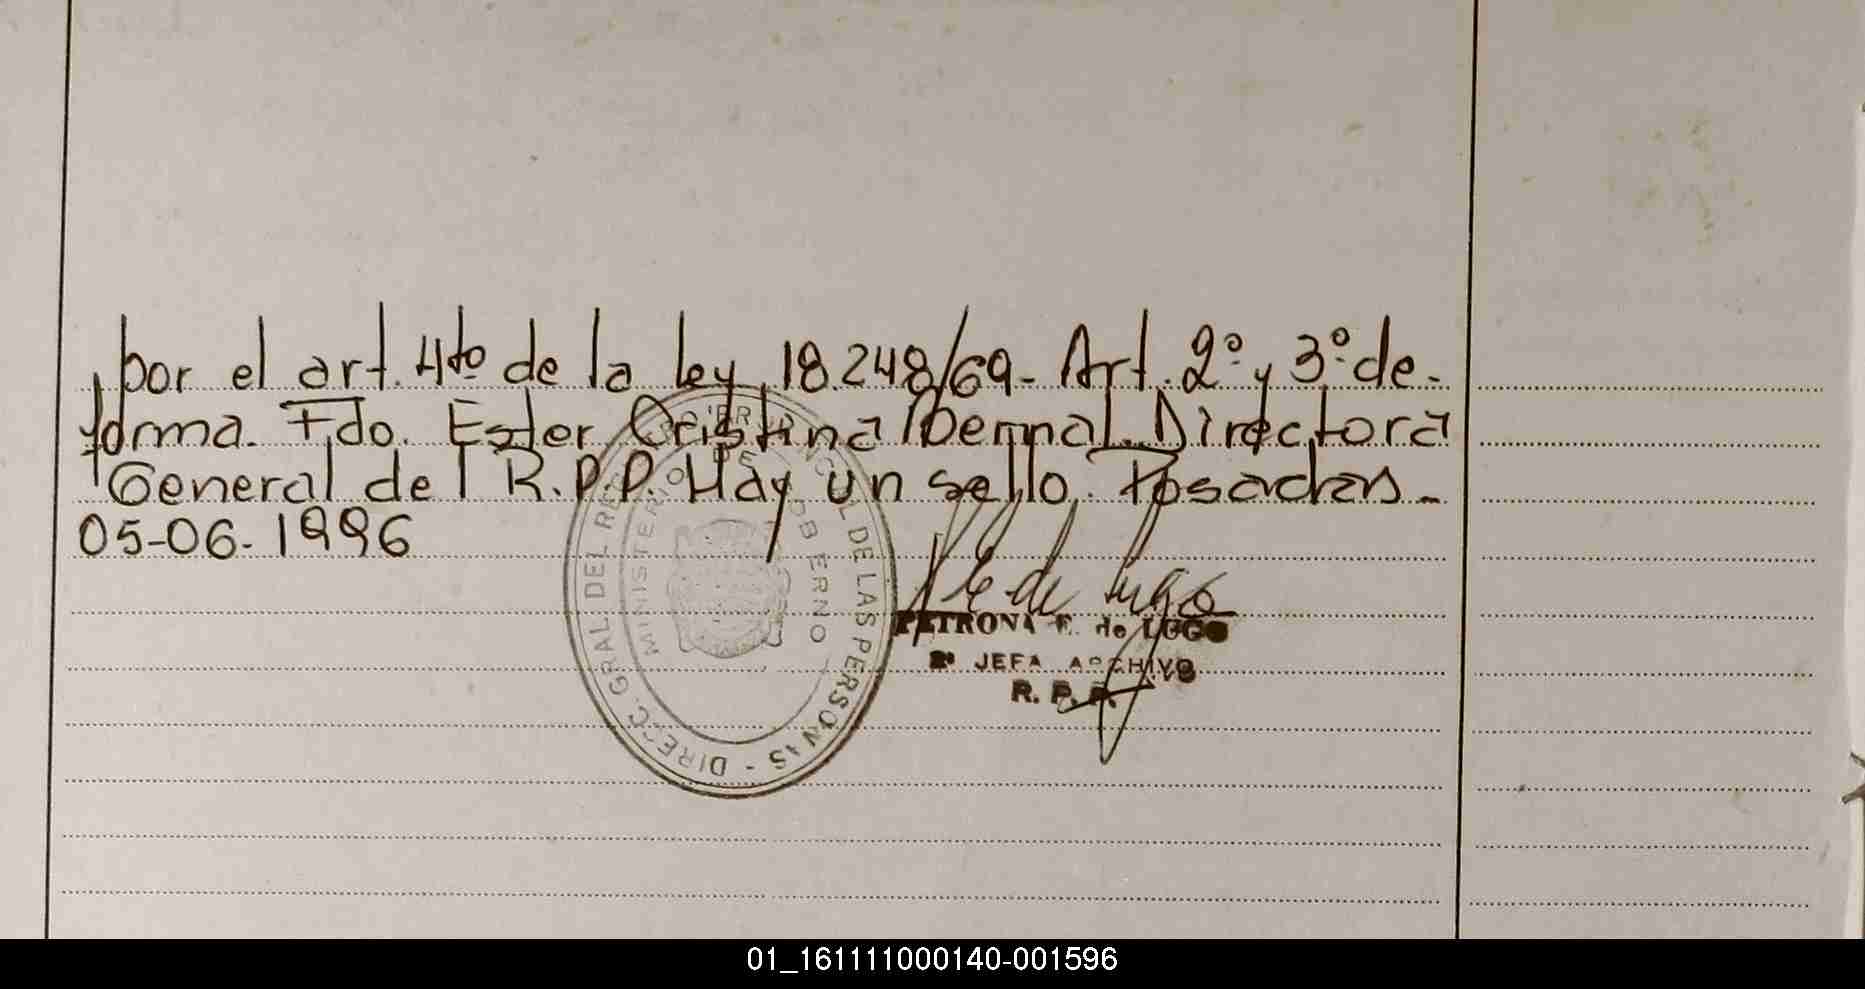 por el art. 4to de la ley 18.248/69- Art. 2° y 3° de-
forma. Fdo. Ester Cristina Bernal. Directora
General del R.P.P. Hay un sello. Posadas-
05-06-1996
DIREC. GRAL. DEL REG. PROVINCIAL DE LAS PERSONAS -
MINISTERIO DE GOBIERNO
P. E. de Lugo
PATRONA E. de LUGO
2ª JEFA ARCHIVO
R. P. P.
01_161111000140-001596